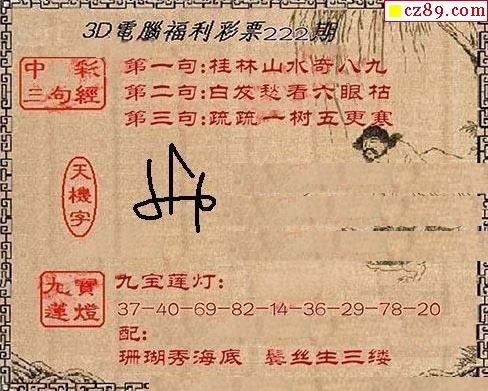 cz89.com
3D電腦福利彩票222期
中彩
三句經
第一句:桂林山水奇八九
第二句:白发愁看六眼枯
第三句:疏疏一树五更寒
天機字
九寶
蓮燈
九宝莲灯:
37-40-69-82-14-36-29-78-20
配:
珊瑚秀海底 鬓丝生三缕